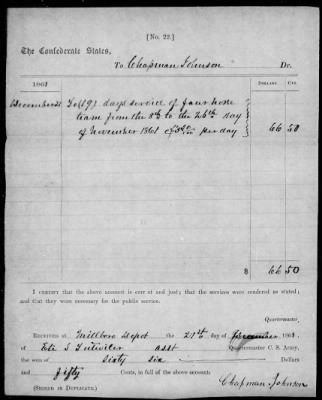 [No. 22.]
The Confederate States,
To Chapman Johnson Dr.
1861 Dollars Cts.
December To (19) days service of four horse
team from the 8th to the 26th day
of November 1861 @ per day 66 50
$ 66 50
I certify that the above account is correct and just; that the services were rendered as stated;
and that they were necessary for the public service.
Quartermaster,
Received at Millboro Depot the 21st December 1861,
of S Tutwiler asst Quartermaster C. S. Army,
the sum of Sixty Six Dollars
and fifty Cents, in full of the above account:
Chapman Johnson
(Signed in Duplicate.)